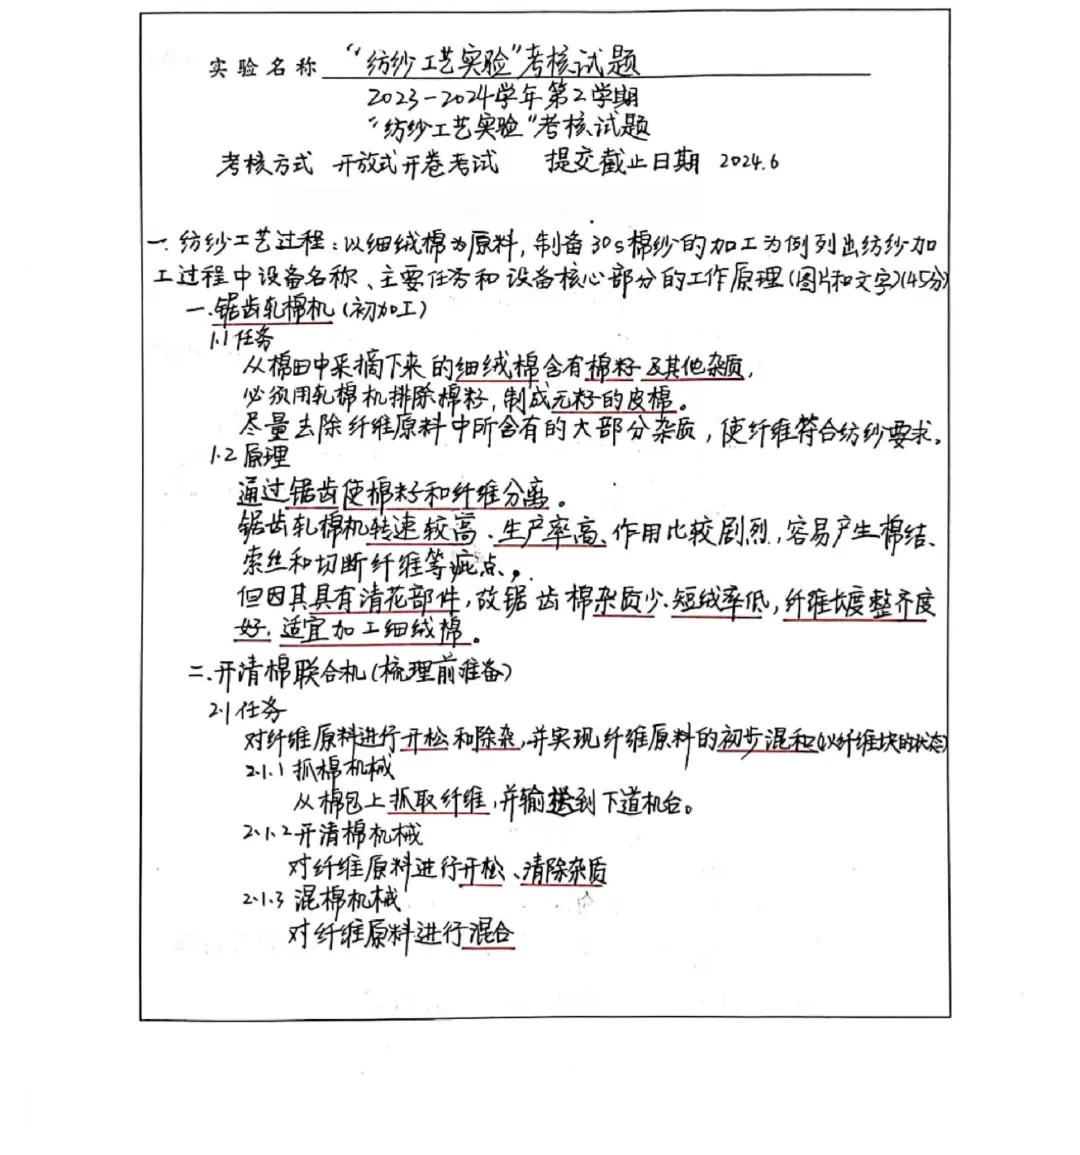 实验名称 “纺纱工艺实验”考核试题
2023-2024学年第2学期
“纺纱工艺实验”考核试题
考核方式 开放式开卷考试 提交截止日期 2024.6
一. 纺纱工艺过程:以细绒棉为原料,制备30s棉纱的加工为例列出纺纱加
工过程中设备名称、主要任务和设备核心部分的工作原理(图片和文字)(45分)
一.锯齿轧棉机(初加工)
1.1任务
从棉田中采摘下来的细绒棉含有棉籽及其他杂质,
必须用轧棉机排除棉籽,制成无籽的皮棉。
尽量去除纤维原料中所含有的大部分杂质,使纤维符合纺纱要求。
1.2原理
通过锯齿使棉籽和纤维分离。
锯齿轧棉机转速较高、生产率高、作用比较剧烈,容易产生棉结、
索丝和切断纤维等疵点,
但因其具有清花部件,故锯齿棉杂质少、短绒率低,纤维长度整齐度
好,适宜加工细绒棉。
二.开清棉联合机(梳理前准备)
2.1任务
对纤维原料进行开松和除杂,并实现纤维原料的初步混和(以纤维块的状态)
2.1.1抓棉机械
从棉包上抓取纤维,并输送到下道机台。
2.1.2开清棉机械
对纤维原料进行开松、清除杂质
2.1.3混棉机械
对纤维原料进行混合